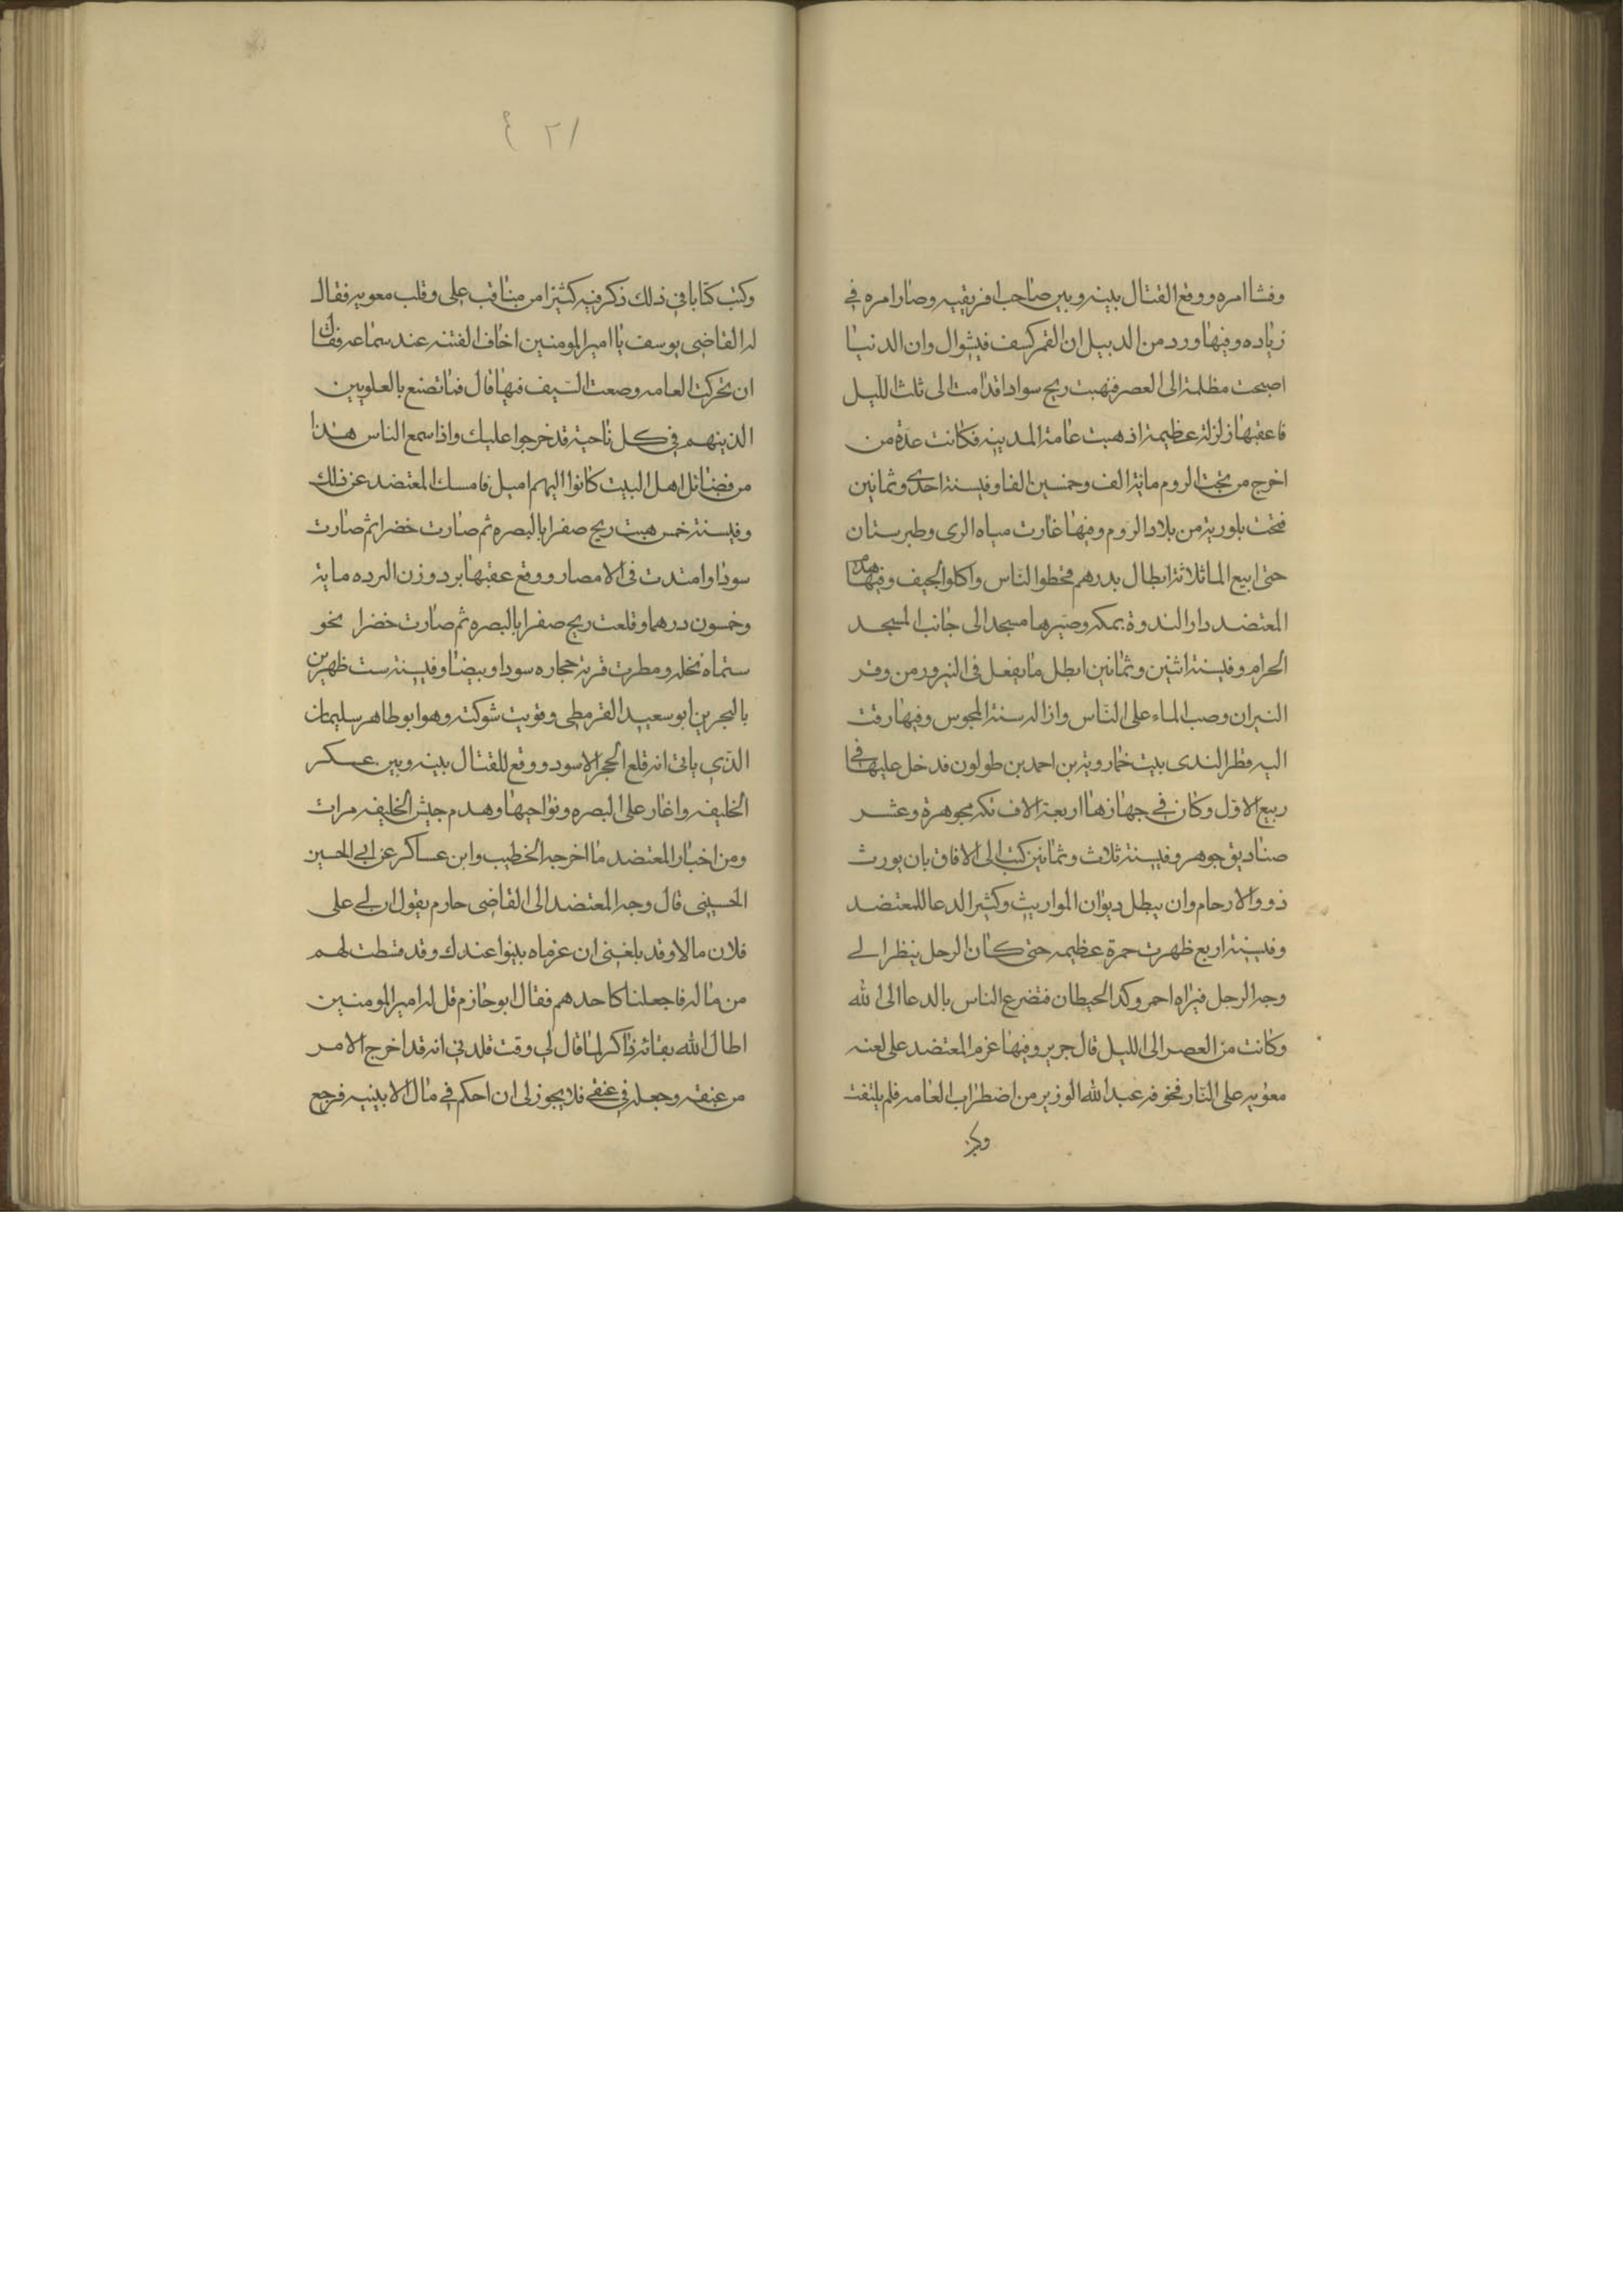 وفشا امره ووقع القتال بينه وبين صاحب افريقيه وصار امره في
زياده وفيها ورد من الدبيل ان القمر كسف في شوال وان الدنيا
اصبحت مظلمة الى العصر فهبت ريح سودا قدامت الى ثلث الليل
فاعقبها زلزلة عظيمة اذهبت عامة المدينه فكانت عدة من
اخرج من تحت الردوم ماية الف وخمسين الفا وفي سنة احدى وثمانين
فتحت بلورية من بلاد الروم وفيها غارت مياه الرى وطبرستان
حتى ابيع الما ثلاثة ابطال بدرهم فخطوا الناس واكلوا الجيف وفيها هدم
المعتضد دار الندوة بمكه وصيرها مسجدا الى جانب المسجد
الحرام وفي سنة اثنين وثمانين ابطل ما يفعل في النيرور من وقر
النيران وصب الماء على الناس وازاله سنة المجوس وفيها رقت
اليه قطر الندى بيت خمارويه بن احمد بن طولون فدخل عليها في
ربيع الاول وكان في جهازها اربعة الاف تكه مجوهرة وعشر
صناديق جوهر وفي سنة ثلاث وثمانين كتب الى الافاق بان يورث
ذوو الارحام وان يبطل ديوان المواريث وكثير الدعا للمعتضد
وفي سنة اربع ظهرت حمرة عظيمه حتى كان الرجل ينظر الى
وجه الرجل فيراه احمر وكد الحيطان فتضرع الناس بالدعا الى الله
وكانت من العصر الى الليل قال جرير وفيها عزم المعتضد على لعنه
معويه على النار فخوفه عبد الله الوزير من اضطراب العامه فلم يلتفت
وكتب
٢١٤
وكتب كتابا في ذلك ذكر فيه كثيرا من مناقب على وقلب معويه فقال
له القاضى يوسف يا امير المومنين اخاف الفتنه عند سماعه فقال
ان تحركت العامه وضعت السيف فيها قال فما تصنع بالعلويين
الذينهم في كل ناحية قد خرجوا عليك واذا سمع الناس هذا
من فضائل اهل البيت كانوا اليهم اميل فامسك المعتضد عن ذلك
وفي سنة خمس هبت ريح صفرا بالبصره ثم صارت خضرا ثم صارت
سودا وامتدت في الامصار ووقع عقبها برد وزن البرده ماية
وخمسون درهما وقلعت ريح صفرا بالبصره ثم صارت خضرا نحو
ستماه نخله ومطرت قرية حجاره سودا وبيضا وفي سنة ست ظهر بن
بالبحرين ابو سعيد القرمطى وقويت شوكته وهو ابو طاهر سليمان
الذي ياتي انه قلع الحجر الاسود ووقع للقتال بينه وبين عسكر
الخليفه واغار على البصره ونواحيها وهدم جيش الخليفه مرات
ومن اخبار المعتضد ما اخرجه الخطيب وابن عساكر عن ابي الحسين
الحسينى قال وجه المعتضد الى القاضى حارم يقول ان لي على
فلان مالا وقد بلغنى ان غرماه بينوا عندك وقد قسطت لهم
من ماله فاجعلنا كاحدهم فقال ابو حازم قل له امير المومنين
اطال الله بقائه ذاكر لما قال لي وقت قلدني انه قد اخرج الامر
من عنقه وجعله في عنقي فلا يجوز لى ان احكم في مال الا ببينيه فرجع